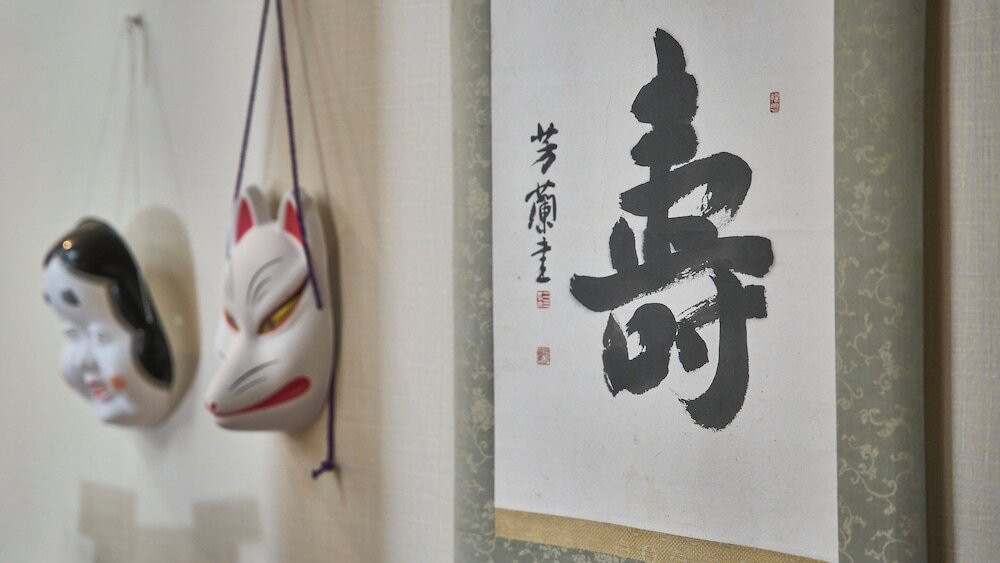 壽
芳蘭書